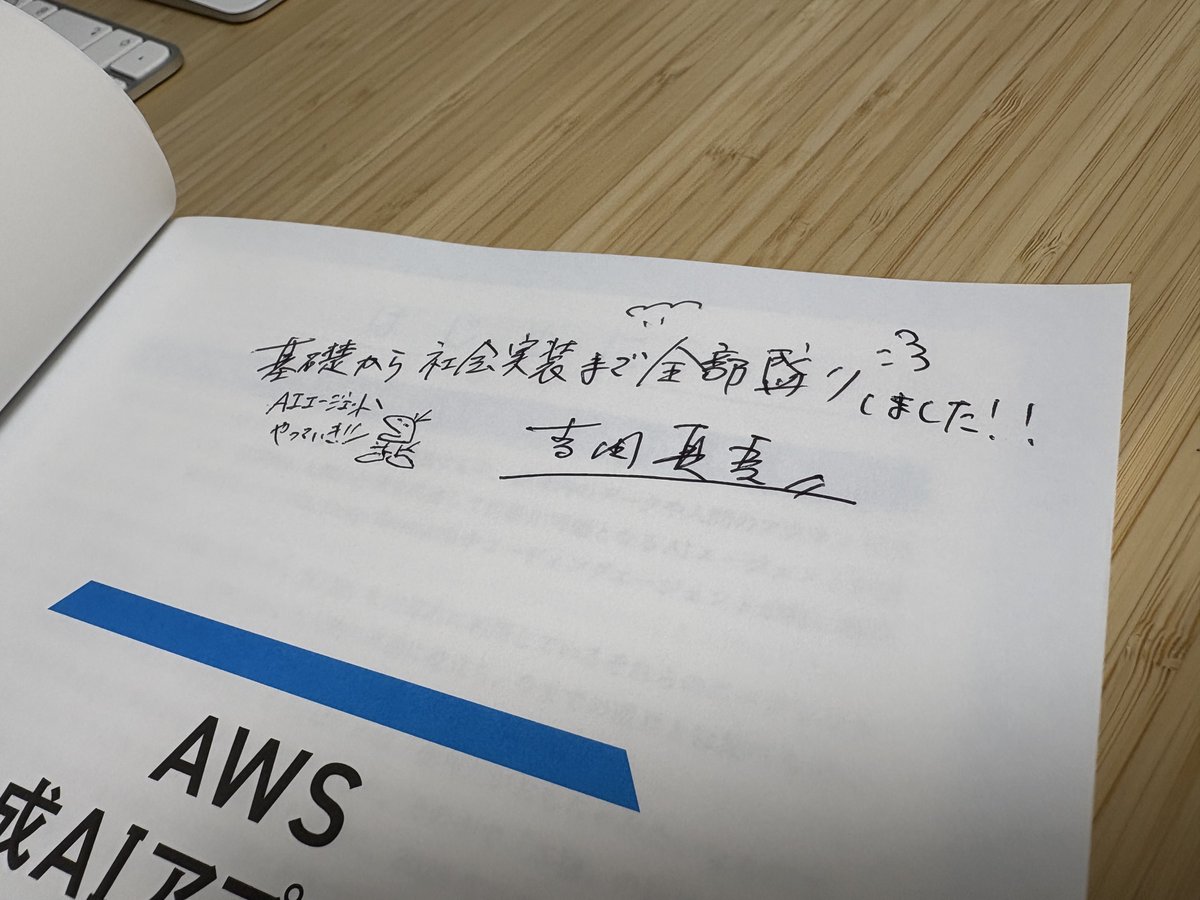 基礎から社会実装まで全部盛り
しました!!
AIエージェント、
やっていき!!
吉田真吾
AWS
成AIアプ